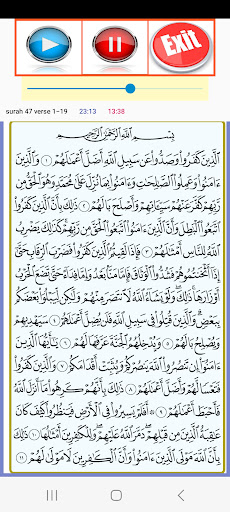 Exit
surah 47 verse 1-19 23:13 13:38
بِسْمِ اللَّهِ الرَّحْمَٰنِ الرَّحِيمِ
الَّذِينَ كَفَرُوا وَصَدُّوا عَن سَبِيلِ اللَّهِ أَضَلَّ أَعْمَالَهُمْ ١ وَالَّذِينَ
ءَامَنُوا وَعَمِلُوا الصَّالِحَاتِ وَءَامَنُوا بِمَا نُزِّلَ عَلَىٰ مُحَمَّدٍ وَهُوَ الْحَقُّ مِن
رَّبِّهِمْ كَفَّرَ عَنْهُمْ سَيِّئَاتِهِمْ وَأَصْلَحَ بَالَهُمْ ٢ ذَٰلِكَ بِأَنَّ الَّذِينَ كَفَرُوا
اتَّبَعُوا الْبَاطِلَ وَأَنَّ الَّذِينَ ءَامَنُوا اتَّبَعُوا الْحَقَّ مِن رَّبِّهِمْ كَذَٰلِكَ يَضْرِبُ
اللَّهُ لِلنَّاسِ أَمْثَالَهُمْ ٣ فَإِذَا لَقِيتُمُ الَّذِينَ كَفَرُوا فَضَرْبَ الرِّقَابِ حَتَّىٰ
إِذَا أَثْخَنتُمُوهُمْ فَشُدُّوا الْوَثَاقَ فَإِمَّا مَنًّا بَعْدُ وَإِمَّا فِدَاءً حَتَّىٰ تَضَعَ الْحَرْبُ
أَوْزَارَهَا ذَٰلِكَ وَلَوْ يَشَاءُ اللَّهُ لَانتَصَرَ مِنْهُمْ وَلَٰكِن لِّيَبْلُوَا بَعْضَكُم
بِبَعْضٍ وَالَّذِينَ قُتِلُوا فِي سَبِيلِ اللَّهِ فَلَن يُضِلَّ أَعْمَالَهُمْ ٤ سَيَهْدِيهِمْ
وَيُصْلِحُ بَالَهُمْ ٥ وَيُدْخِلُهُمُ الْجَنَّةَ عَرَّفَهَا لَهُمْ ٦ يَا أَيُّهَا الَّذِينَ
ءَامَنُوا إِن تَنصُرُوا اللَّهَ يَنصُرْكُمْ وَيُثَبِّتْ أَقْدَامَكُمْ ٧ وَالَّذِينَ كَفَرُوا
فَتَعْسًا لَّهُمْ وَأَضَلَّ أَعْمَالَهُمْ ٨ ذَٰلِكَ بِأَنَّهُمْ كَرِهُوا مَا أَنزَلَ اللَّهُ
فَأَحْبَطَ أَعْمَالَهُمْ ٩ أَفَلَمْ يَسِيرُوا فِي الْأَرْضِ فَيَنظُرُوا كَيْفَ كَانَ
عَاقِبَةُ الَّذِينَ مِن قَبْلِهِمْ دَمَّرَ اللَّهُ عَلَيْهِمْ وَلِلْكَافِرِينَ أَمْثَالُهَا ١٠ ذَٰلِكَ
بِأَنَّ اللَّهَ مَوْلَى الَّذِينَ ءَامَنُوا وَأَنَّ الْكَافِرِينَ لَا مَوْلَىٰ لَهُمْ ١١